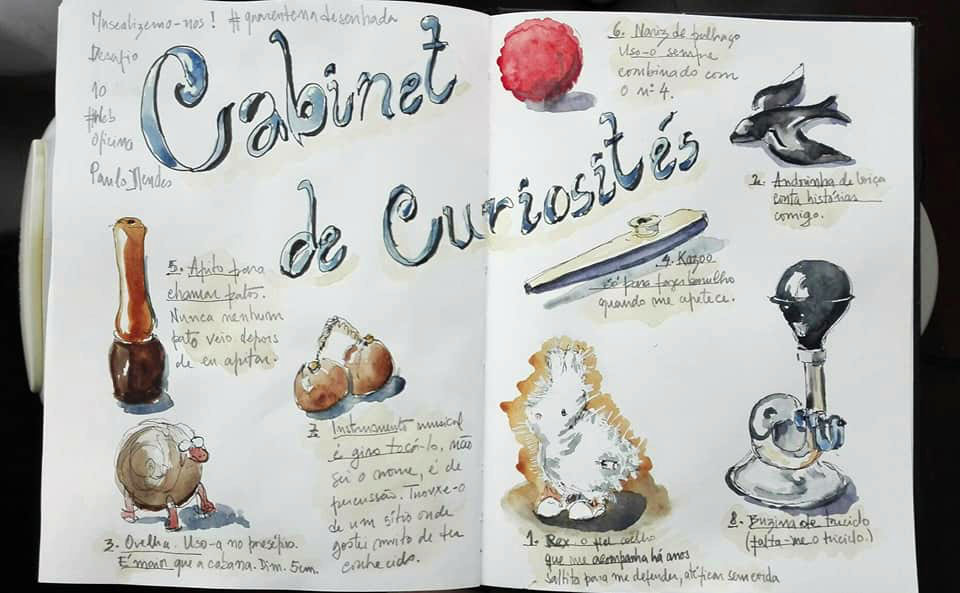 Musealizemo-nos! #quarentenadesenhada
Desafio
10
#Web
oficina
Paulo Mendes
Cabinet
de Curiosités
6. Nariz de palhaço
Uso-o sempre
combinado com
o nº 4.
2. Andorinha de loiça
conta histórias
comigo.
5. Apito para
chamar patos.
Nunca nenhum
pato veio depois
de eu apitar.
4. Kazoo
só para fazer barulho
quando me apetece.
7. Instrumento musical
é giro tocá-lo, não
sei o nome, é de
percussão. Trouxe-o
de um sítio onde
gostei muito de ter
conhecido.
3. Ovelha. Uso-a no presépio.
É maior que a cabana. Dim. 5cm.
1. Rex, o fiel coelho
que me acompanha há anos
saltita para me defender, até ficar sem corda
8. Buzina de triciclo
(falta-me o triciclo.)